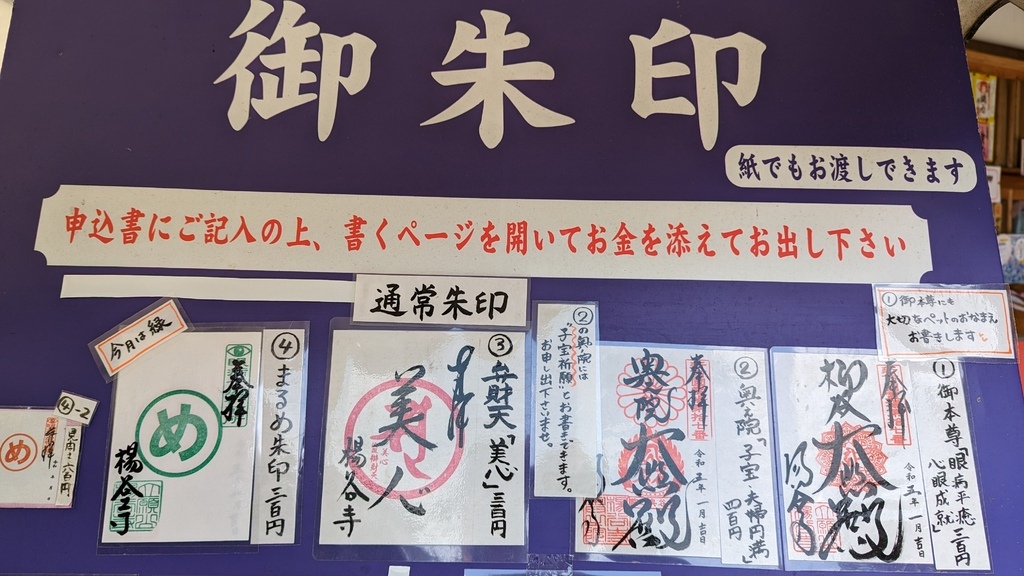 御朱印
紙でもお渡しできます
申込書にご記入の上、書くページを開いてお金を添えてお出し下さい
通常朱印
①御本尊にも
大切なペットのおなまえ
お書きします
①御本尊「眼病平癒
心眼成就」三百円
奉拝
大悲殿
一月吉日
②の奥の院には
"子宝祈願"とお書きできます。
お申し出下さいませ。
②奥の院「子宝・夫婦円満」
四百円
奉拝
奥院
大悲殿
令和三年一月吉日
③弁財天「美心」三百円
美人
楊谷寺
④まるめ朱印三百円
今月は緑
奉拝
め
楊谷寺
④-2
め